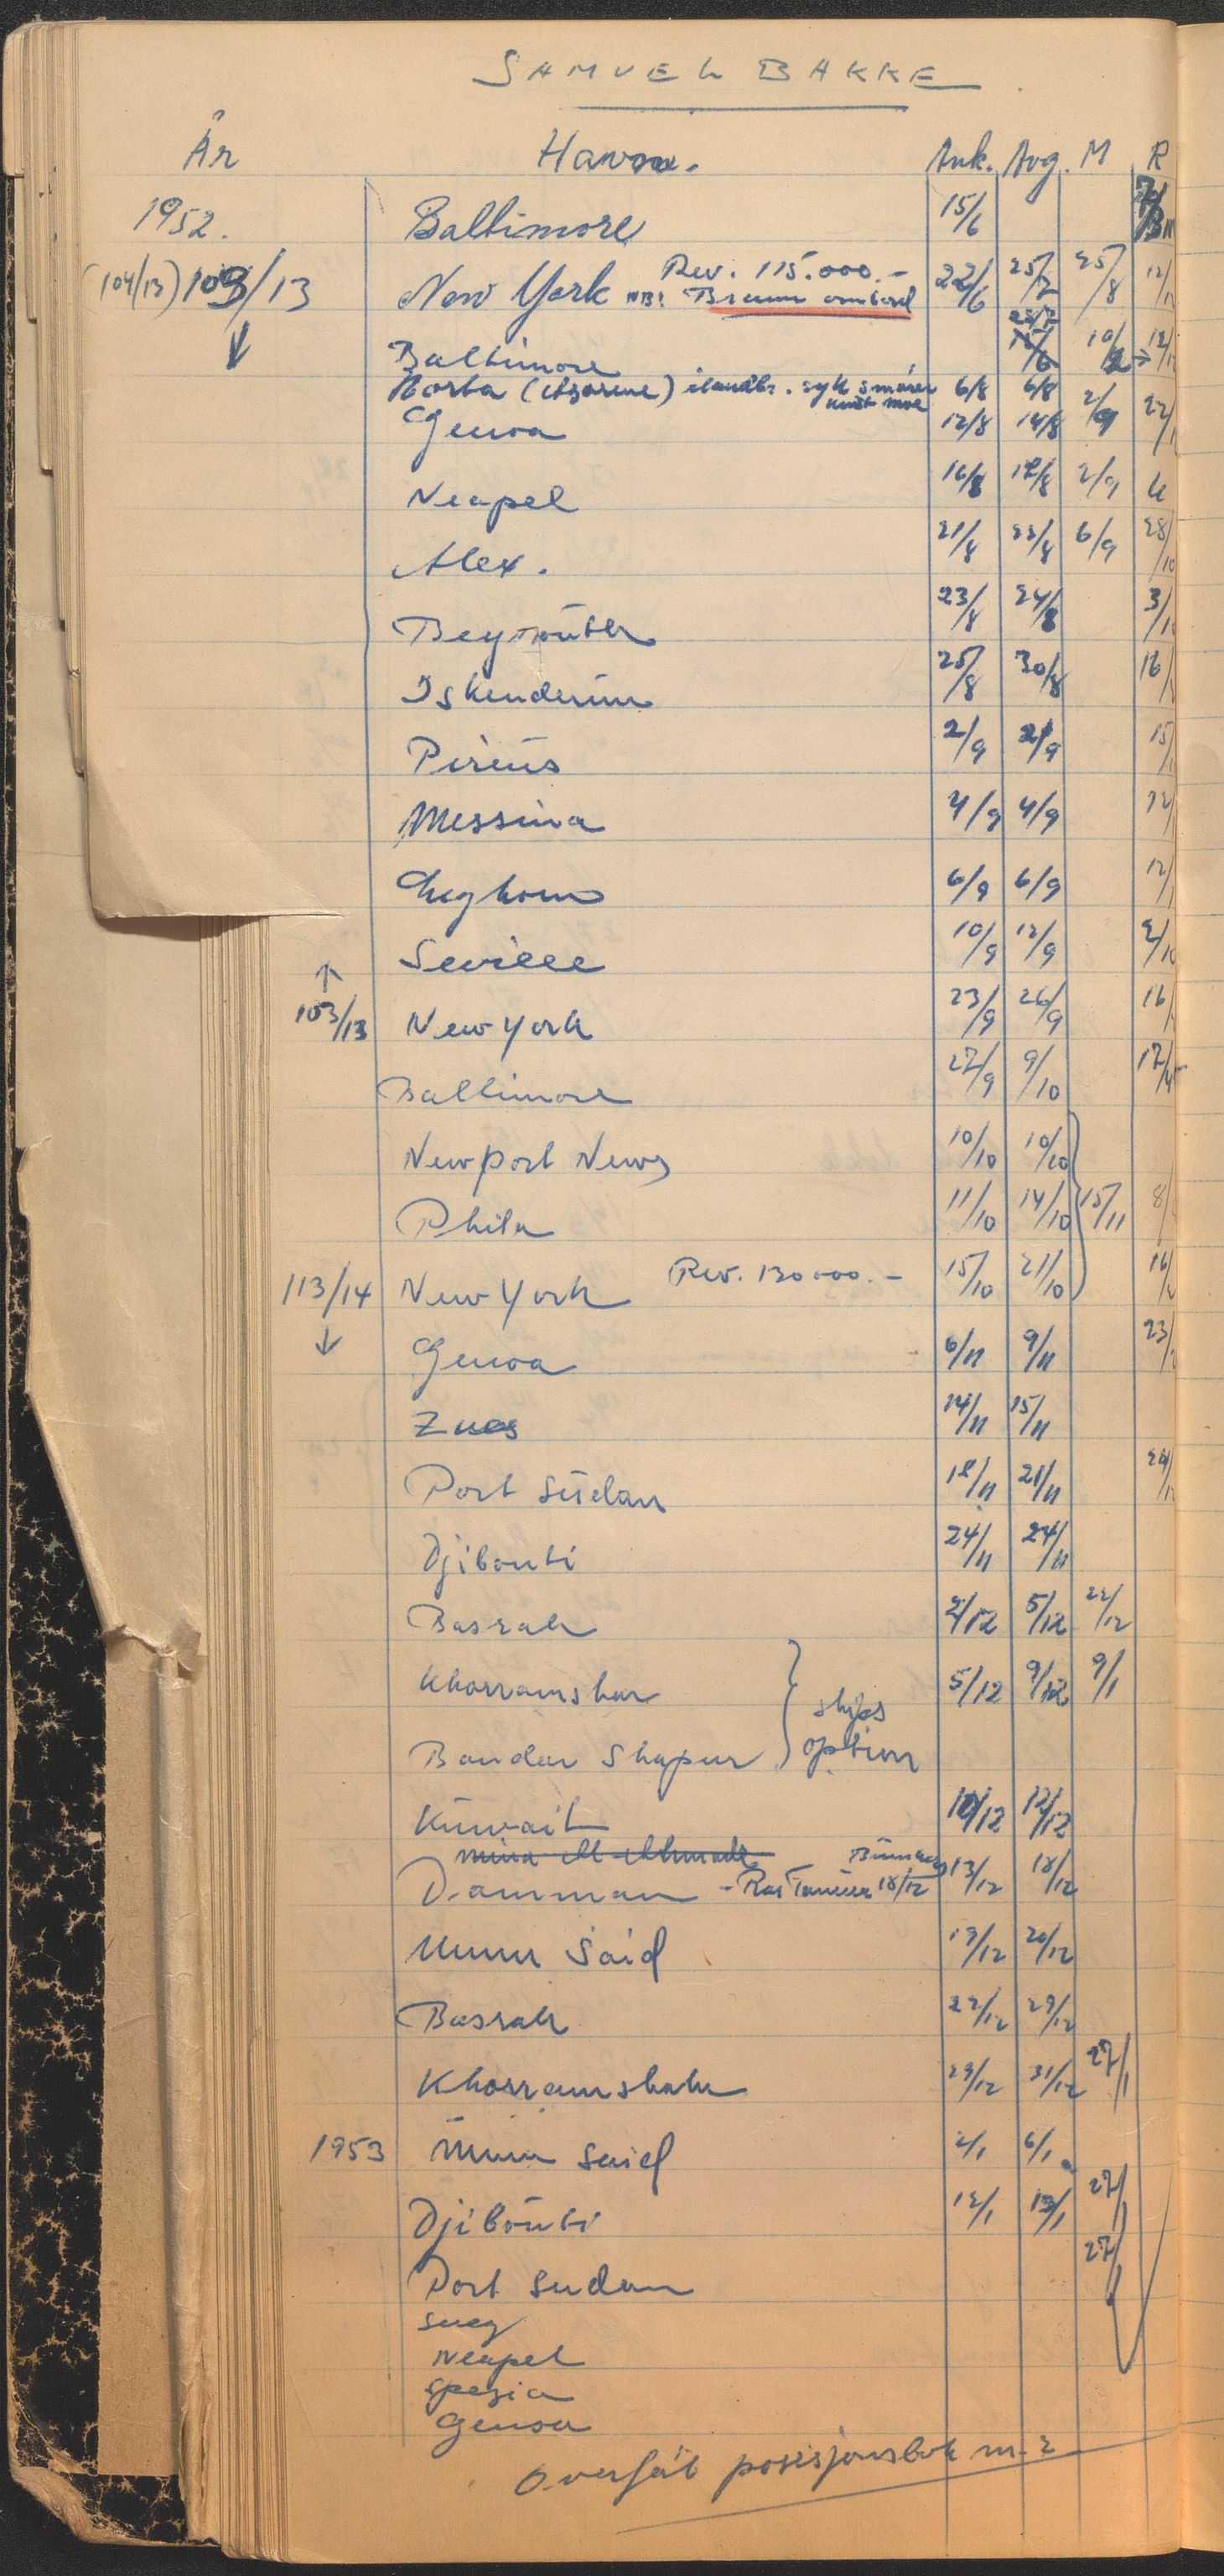 SAMUEL BAKKE
År Havn. Ank. Avg. M R
1952. Baltimore 15/6
(104/13) 103/13 New York Rev. 115.000.- NB! Braun ombord 22/6 25/7 25/8
Baltimore 10/
Horta (Azorene) 6/8 6/8
Genoa 12/8 14/8 2/9
Neapel 16/8 18/8 2/9
Alex. 21/8 22/8 6/9 28/10
Beyrouth 23/8 24/8
Iskenderun 25/8 30/8
Pireus 2/9 2/9
Messina 4/9 4/9
Leghorn 6/9 6/9
Seville 10/9 12/9
103/13 New York 23/9 26/9
Baltimore 27/9 9/10
Newport News 10/10 10/10
Phila 11/10 14/10 15/11
113/14 New York Rev. 130000.- 15/10 21/10
Genoa 6/11 9/11
Zues 14/11 15/11
Port Sudan 18/11 21/11
Djibouti 24/11 24/11
Basrah 2/12 5/12 22/12
Khorramshar 5/12 9/12 9/1
ships
Bandar Shapur option
Kuwait 10/12 12/12
Mina Al Ahmadi
Damman - Ras Tanura 18/12 13/12 18/12
Umm Said 19/12 20/12
Basrah 22/12 29/12
Khorramshahr 29/12 31/12 27/1
1953 Umm Said 2/1 6/1
Djibouti 12/1 13/1 27/1
Port Sudan 27/1
Suez
Neapel
Spezia
Genoa
Overført posisjonsbok nr. 2